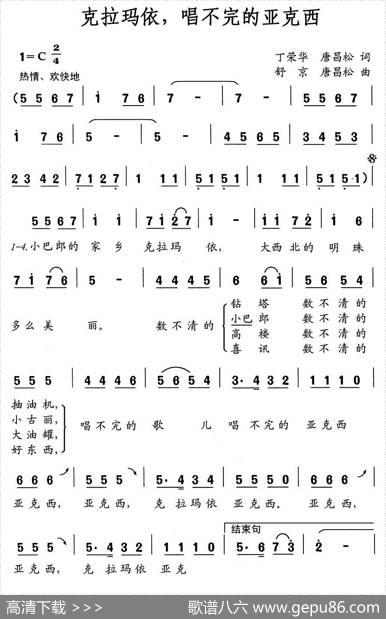 克拉玛依，唱不完的亚克西
1=C 2/4
丁荣华 唐昌松 词
热情、欢快地
舒 京 唐昌松 曲
(5 5 6 7 | 1 7 6 | 5 - | 5 - | 5 5 6 7 |
1 7 6 | 5 - | 5 - | 4 5 6 5 | 3 4 5 3 |
2 3 4 2 | 7 1 2 7 | 1 1 1 | 5 1 5 1 | 5 1 5 1 | 5 1 5 1)
5 5 6 7 | 1 1 | 7 1 2 7 | 1 - | 1 1 7 2 | 6 1
1-4.小巴郎的 家乡 克拉玛 依， 大西北的 明珠
7 1 7 6 | 5 - | 4 4 4 5 | 6 6 1 | 5 6 5 4
多么美 丽。 数不清的
钻塔 数不清的
小巴郎 数不清的
高楼 数不清的
喜讯 数不清的
5 5 5 | 4 4 4 6 | 5 6 5 4 | 3· 4 3 2 | 1 1 1 0
抽油机，
小古丽，
大油罐，
好东西，
唱不完的 歌 儿 唱不完的 亚克西
6 6 6 | 5 5 5 | 5· 4 3 2 | 5 5 5 0 | 6 6 6
亚克西， 亚克西， 克拉玛依 亚克西。 亚克西，
结束句
5 5 5 | 5· 4 3 2 | 1 1 1 0 | 5· 6 7 3 | 2 -
亚克西， 克拉玛依 亚克
高清下载 >>>
歌谱八六 www.gepu86.com